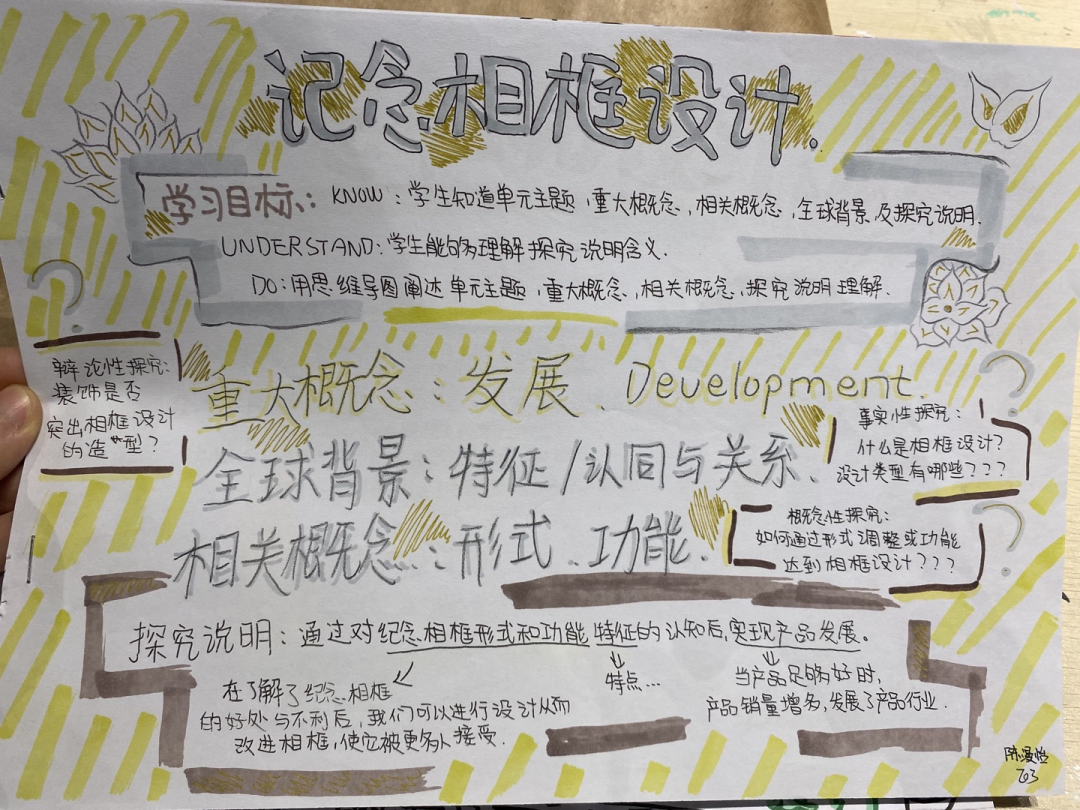 记念相框设计.
学习目标: KNOW: 学生知道单元主题, 重大概念, 相关概念, 全球背景及探究说明.
UNDERSTAND: 学生能够理解探究说明含义.
DO: 用思维导图阐达单元主题, 重大概念, 相关概念, 探究说明理解.
辩论性探究:
装饰是否
突出相框设计
的造型?
重大概念: 发展. Development.
全球背景: 特征/认同与关系.
相关概念: 形式. 功能.
事实性探究:
什么是相框设计?
设计类型有哪些???
概念性探究:
如何通过形式调整或功能
达到相框设计???
探究说明: 通过对纪念相框形式和功能特征的认知后, 实现产品发展。
在了解了纪念相框
的好处与不利后, 我们可以进行设计从而
改进相框, 使它被更多人接受.
特点...
当产品足够好时,
产品销量增多, 发展了产品行业.
陈漫怡
703